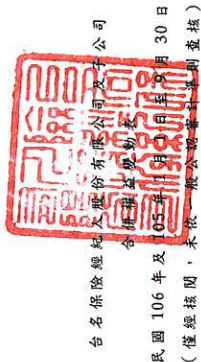 台名保險經紀人股份有限公司及子公司
合併權益變動表
民國 106 年及 105 年 1 月 1 日至 9 月 30 日
(僅經核閱,未依一般公認審計準則查核)